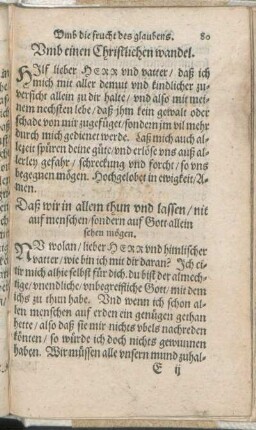 Vmb die frucht des glaubens. 80
Vmb einen Christlichen wandel.
HIlf lieber HERR vnd vatter/ daß ich
mich mit aller demut vnd kindlicher zu-
versicht allein zu dir halte/ vnd also mit mei-
nem nechsten lebe/ daß jhm kein gewalt oder
schade von mir zugefügt/ sondern jm vil mehr
durch mich gedienet werde. Laß mich auch al-
lezeit spüren deine güte/ vnd erlöse vns auß al-
lerley gefahr/ schreckung vnd forcht/ so vns
begegnen mögen. Hochgelobet in ewigkeit/ A-
men.
Daß wir in allem thun vnd lassen/ nit
auf menschen/ sondern auf Gott allein
sehen mögen.
NV wolan/ lieber HERR vnd himlischer
vatter/ wie bin ich mit dir daran? Ich ci-
tir mich alhie selbst für dich. du bist der almech-
tige/ vnendliche/ vnbegreiffliche Gott/ mit dem
ichs zu thun habe. Vnd wenn ich schon al-
len menschen auf erden ein genügen gethan
hette/ also daß sie mir nichts vbels nachreden
könten/ so würde ich doch nichts gewunnen
haben. Wir müssen alle vnsern mund zuhal-
E ij